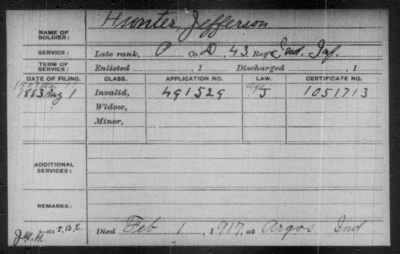 Hunter, Jefferson
NAME OF
SOLDIER:
SERVICE:
Late rank, P Co. D, 43 Reg't Ind. Inf.
TERM OF
SERVICE:
Enlisted , 1 Discharged , 1
DATE OF FILING. CLASS. APPLICATION NO. LAW. CERTIFICATE NO.
1883 Aug 1 Invalid, 491529 J 1051713
Widow,
Minor,
ADDITIONAL
SERVICES:
REMARKS:
Died Feb 1, 1917, at Argos Ind